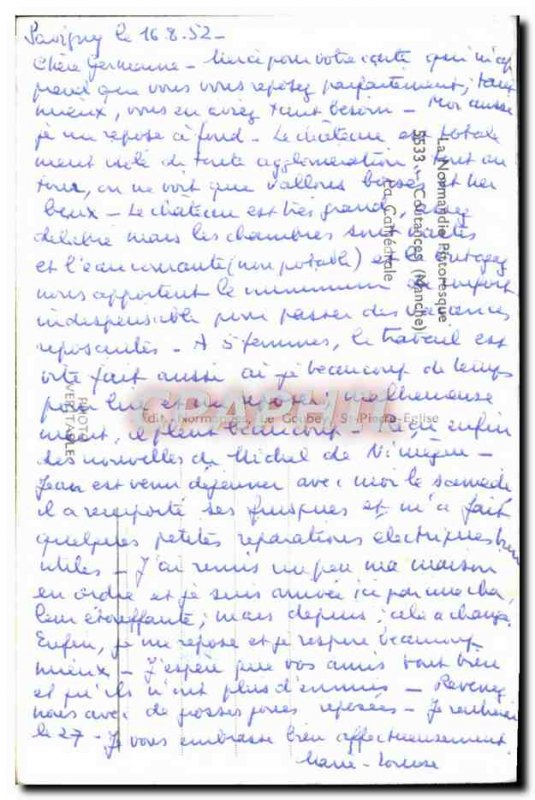 Savigny le 16.8.52 -
Chère Germaine - Merci pour votre carte qui m'ap
prend que vous vous reposez parfaitement, tant
mieux, vous en avez tant besoin - Moi aussi
je me repose à fond - Le château est totale
ment isolé de toute agglomération, tout au
tour, on ne voit que vallons boisés et her
beux - Le château est très grand, assez
délabré mais les chambres sont
et l'eau courante (non potable) et le
nous apportent le minimum de confort
indispensable pour passer des vacances
reposantes - A 5 femmes, le travail est
vite fait aussi ai-je beaucoup de temps
pour lire et me reposer; malheureuse
ment, il pleut beaucoup - enfin
des nouvelles du Michel de
Jean est venu déjeuner avec moi le samedi
il a remporté ses frusques et m'a fait
quelques petites réparations électriques bien
utiles - J'ai remis un peu ma maison
en ordre et je suis arrivée ici par une cha
leur étouffante; mais depuis, cela a changé
Enfin, je me repose et je respire beaucoup
mieux - J'espère que vos amis vont bien
et qu'ils n'ont plus d'ennuis - Revenez
nous avec de grosses joues reposées - Je
le 27 - Je vous embrasse bien affectueusement
Marie-
La Normandie Pittoresque
5533 - Coutances (Manche)
La Cathédrale
Edit. Normandes Le Goubey St-Pierre-Eglise
PHOTO
VERITABLE
CPAPHIL